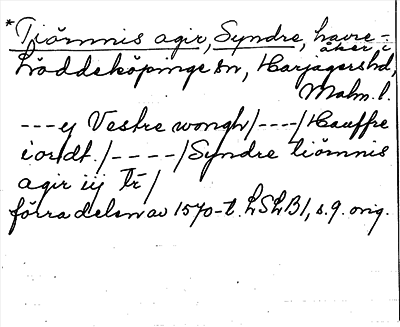 *Tiömnis agir, Syndre, havre-
åker i
Löddeköpinge sn, Harjagers hd,
Malm. l.
---ej Vestre wongh/----/Hauffre
iordt./----/Syndre tiömnis
agir iij Tr/
förra delen av 1570-t. LSLB1, s. 9. orig.